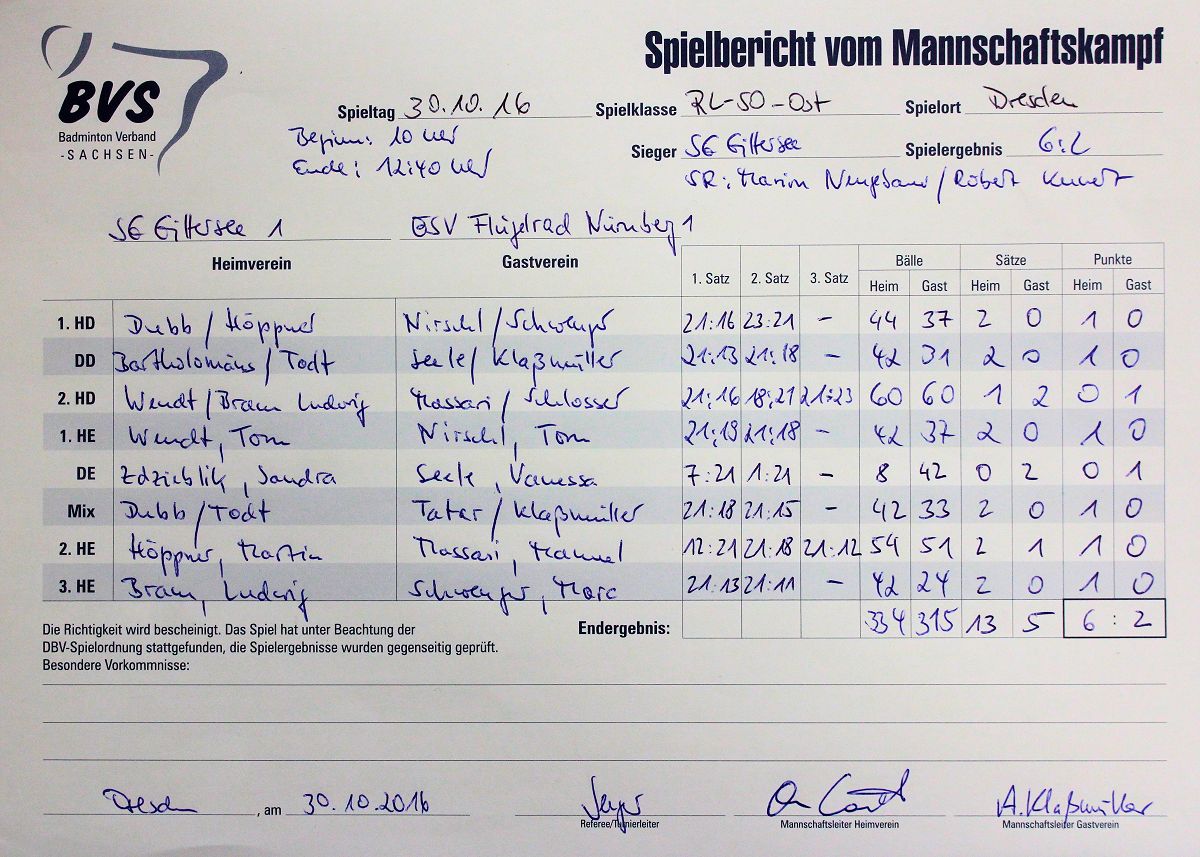 Spielbericht vom Mannschaftskampf
BVS
Badminton Verband
- SACHSEN -
Spieltag 30.10.16 Spielklasse RL-SO-Ost Spielort Dresden
Beginn: 10 Uhr
Ende: 12:40 Uhr
Sieger SG Gittersee Spielergebnis 6:2
SR: Marion Neugebauer / Robert Kunert
SG Gittersee 1 ESV Flügelrad Nürnberg 1
Heimverein Gastverein 1. Satz 2. Satz 3. Satz Bälle Sätze Punkte
Heim Gast Heim Gast Heim Gast
1. HD Dubb / Höppner Nirschl / Schwenger 21:16 23:21 - 44 37 2 0 1 0
DD Bartholomäus / Todt Seele / Klaßmüller 21:13 21:18 - 42 31 2 0 1 0
2. HD Wendt / Bram Ludwig Massari / Schlosser 21:16 18:21 21:23 60 60 1 2 0 1
1. HE Wendt, Tom Nirschl, Tom 21:19 21:18 - 42 37 2 0 1 0
DE Zdzieblik, Sandra Seele, Vanessa 7:21 1:21 - 8 42 0 2 0 1
Mix Dubb / Todt Tatar / Klaßmüller 21:18 21:15 - 42 33 2 0 1 0
2. HE Höppner, Martin Massari, Manuel 12:21 21:18 21:12 54 51 2 1 1 0
3. HE Bram, Ludwig Schwenger, Marc 21:13 21:11 - 42 24 2 0 1 0
Endergebnis: 334 315 13 5 6 : 2
Die Richtigkeit wird bescheinigt. Das Spiel hat unter Beachtung der
DBV-Spielordnung stattgefunden, die Spielergebnisse wurden gegenseitig geprüft.
Besondere Vorkommnisse:
Dresden, am 30.10.2016 A. Klaßmüller
Referee/Turnierleiter Mannschaftsleiter Heimverein Mannschaftsleiter Gastverein